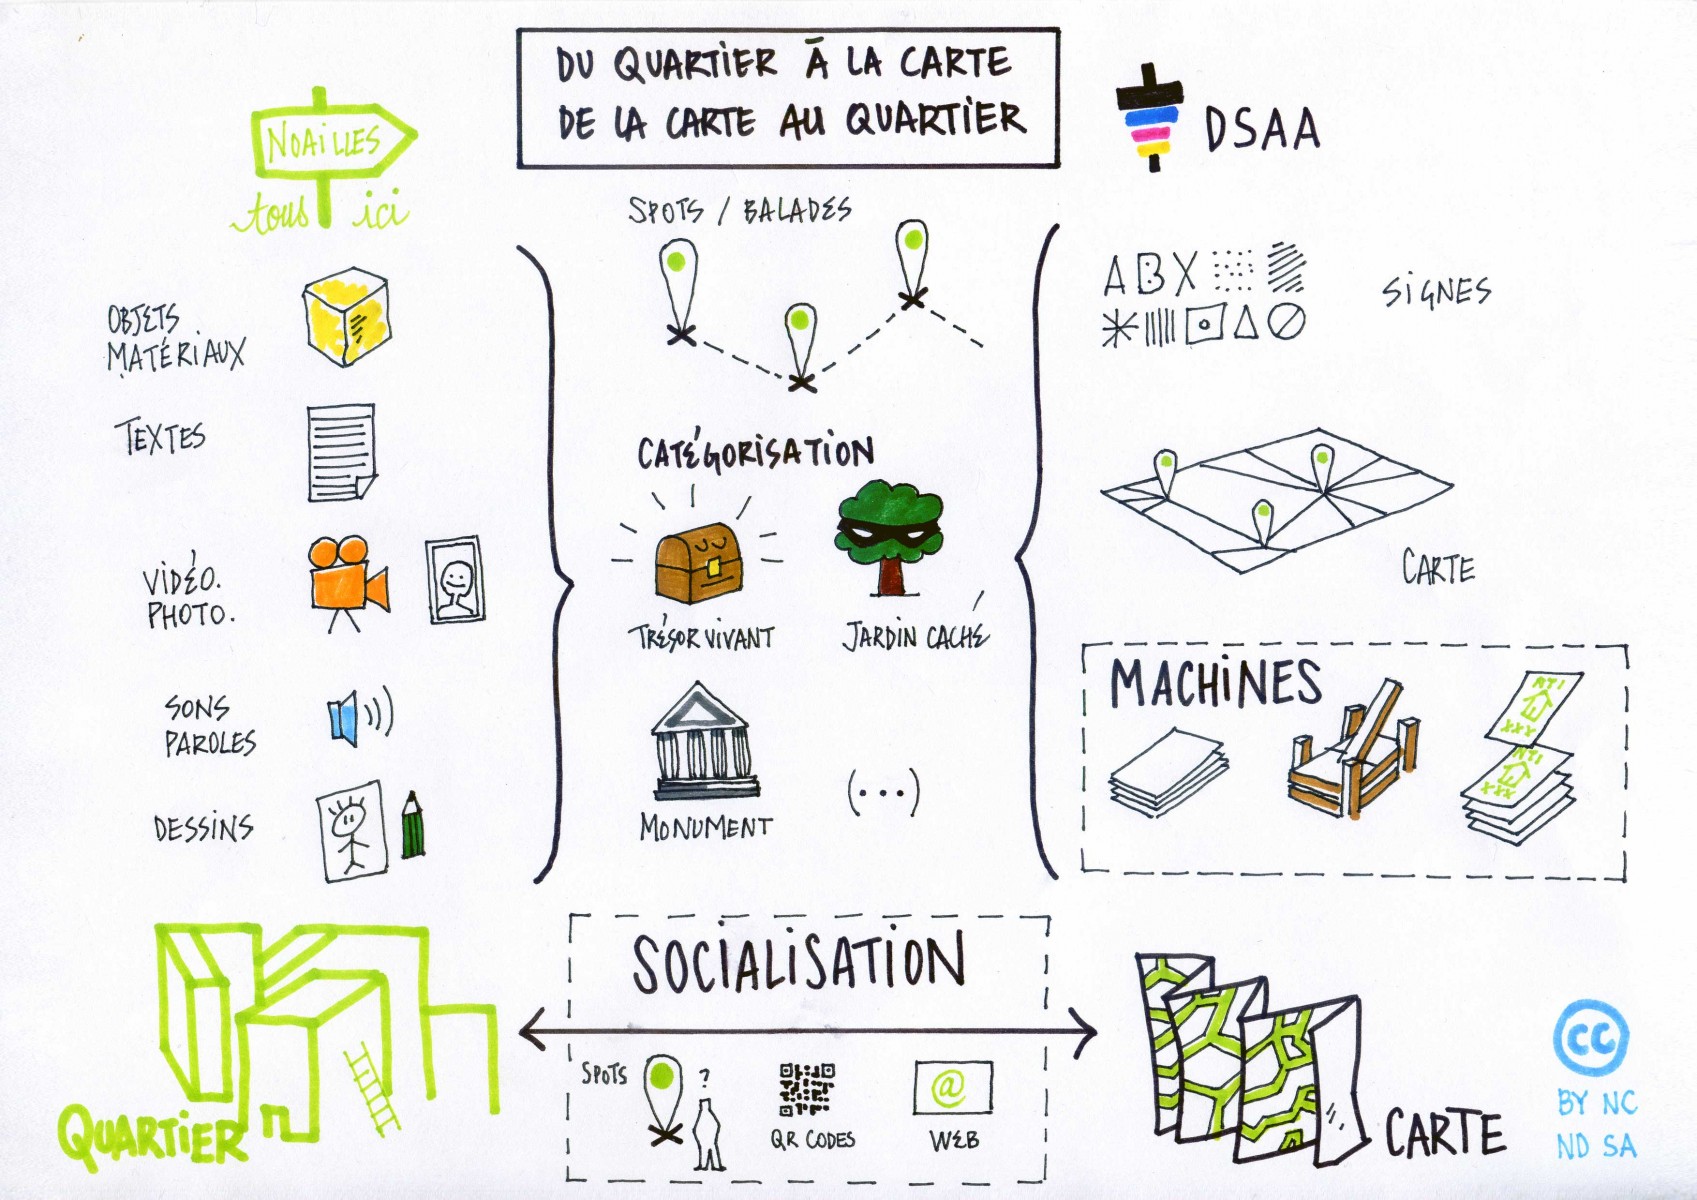 DU QUARTIER À LA CARTE
DE LA CARTE AU QUARTIER
NOAILLES
tous ici
OBJETS
MATÉRIAUX
TEXTES
VIDÉO.
PHOTO.
SONS
PAROLES
DESSINS
SPOTS / BALADES
CATÉGORISATION
TRÉSOR VIVANT
JARDIN CACHÉ
MONUMENT
(...)
DSAA
ABX
SIGNES
CARTE
MACHINES
NTI
XXX
NTI
XXX
QUARTIER
SOCIALISATION
SPOTS
?
QR CODES
@
WEB
CARTE
CC
BY NC
ND SA